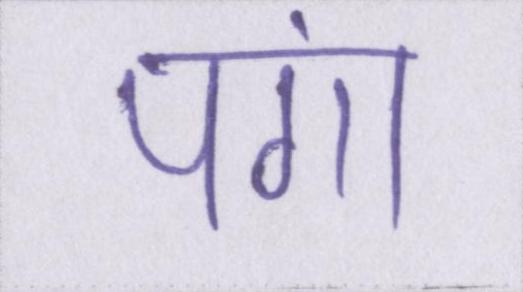 पगां